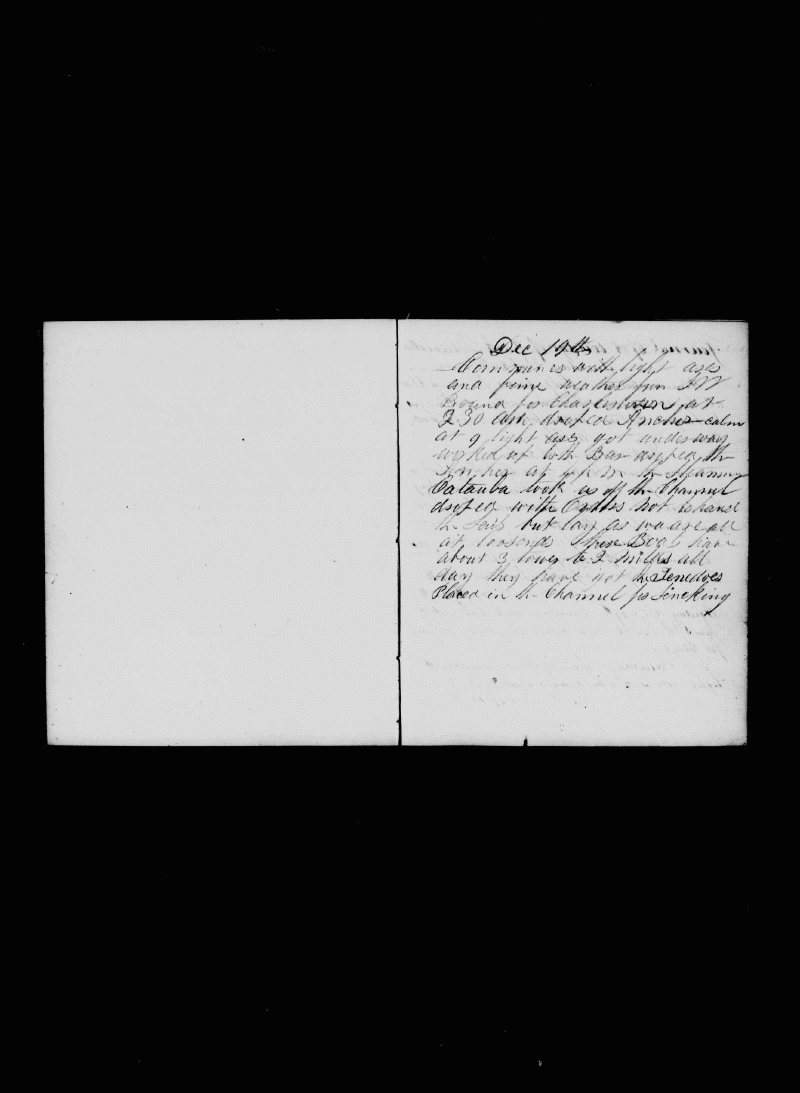 Dec 19th
Comminces with light airs
and fine weather from NW
Bound for Charlestown at
2.30 am droped Ancher calm
at 9 light airs got underway
worked up to the Bar droped the
Ancher at 4 P M the Steamer
Catauba took us off the Channel
droped with Orders not to hand
the Sails but lay as we are all
at loosends these Boats have
about 3 tows to 2 miles all
day they have not the Tenedoes
Placed in the Channel for Sincking